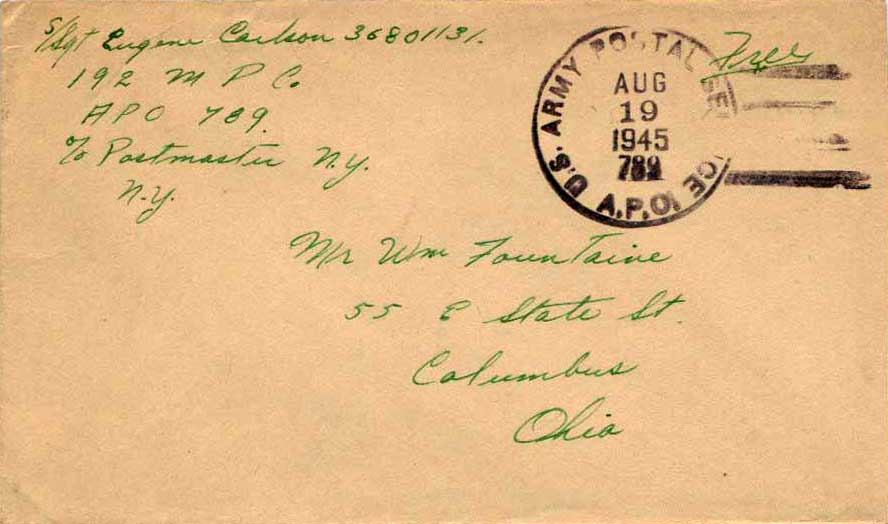 S/Sgt Eugene Carlson 36801131.
192 M P Co
APO 789.
℅ Postmaster N.Y.
N.Y.
Free
U.S. ARMY POSTAL SERVICE
AUG
19
1945
789
A.P.O.
Mr Wm Fountaine
55 E State St.
Columbus
Ohio